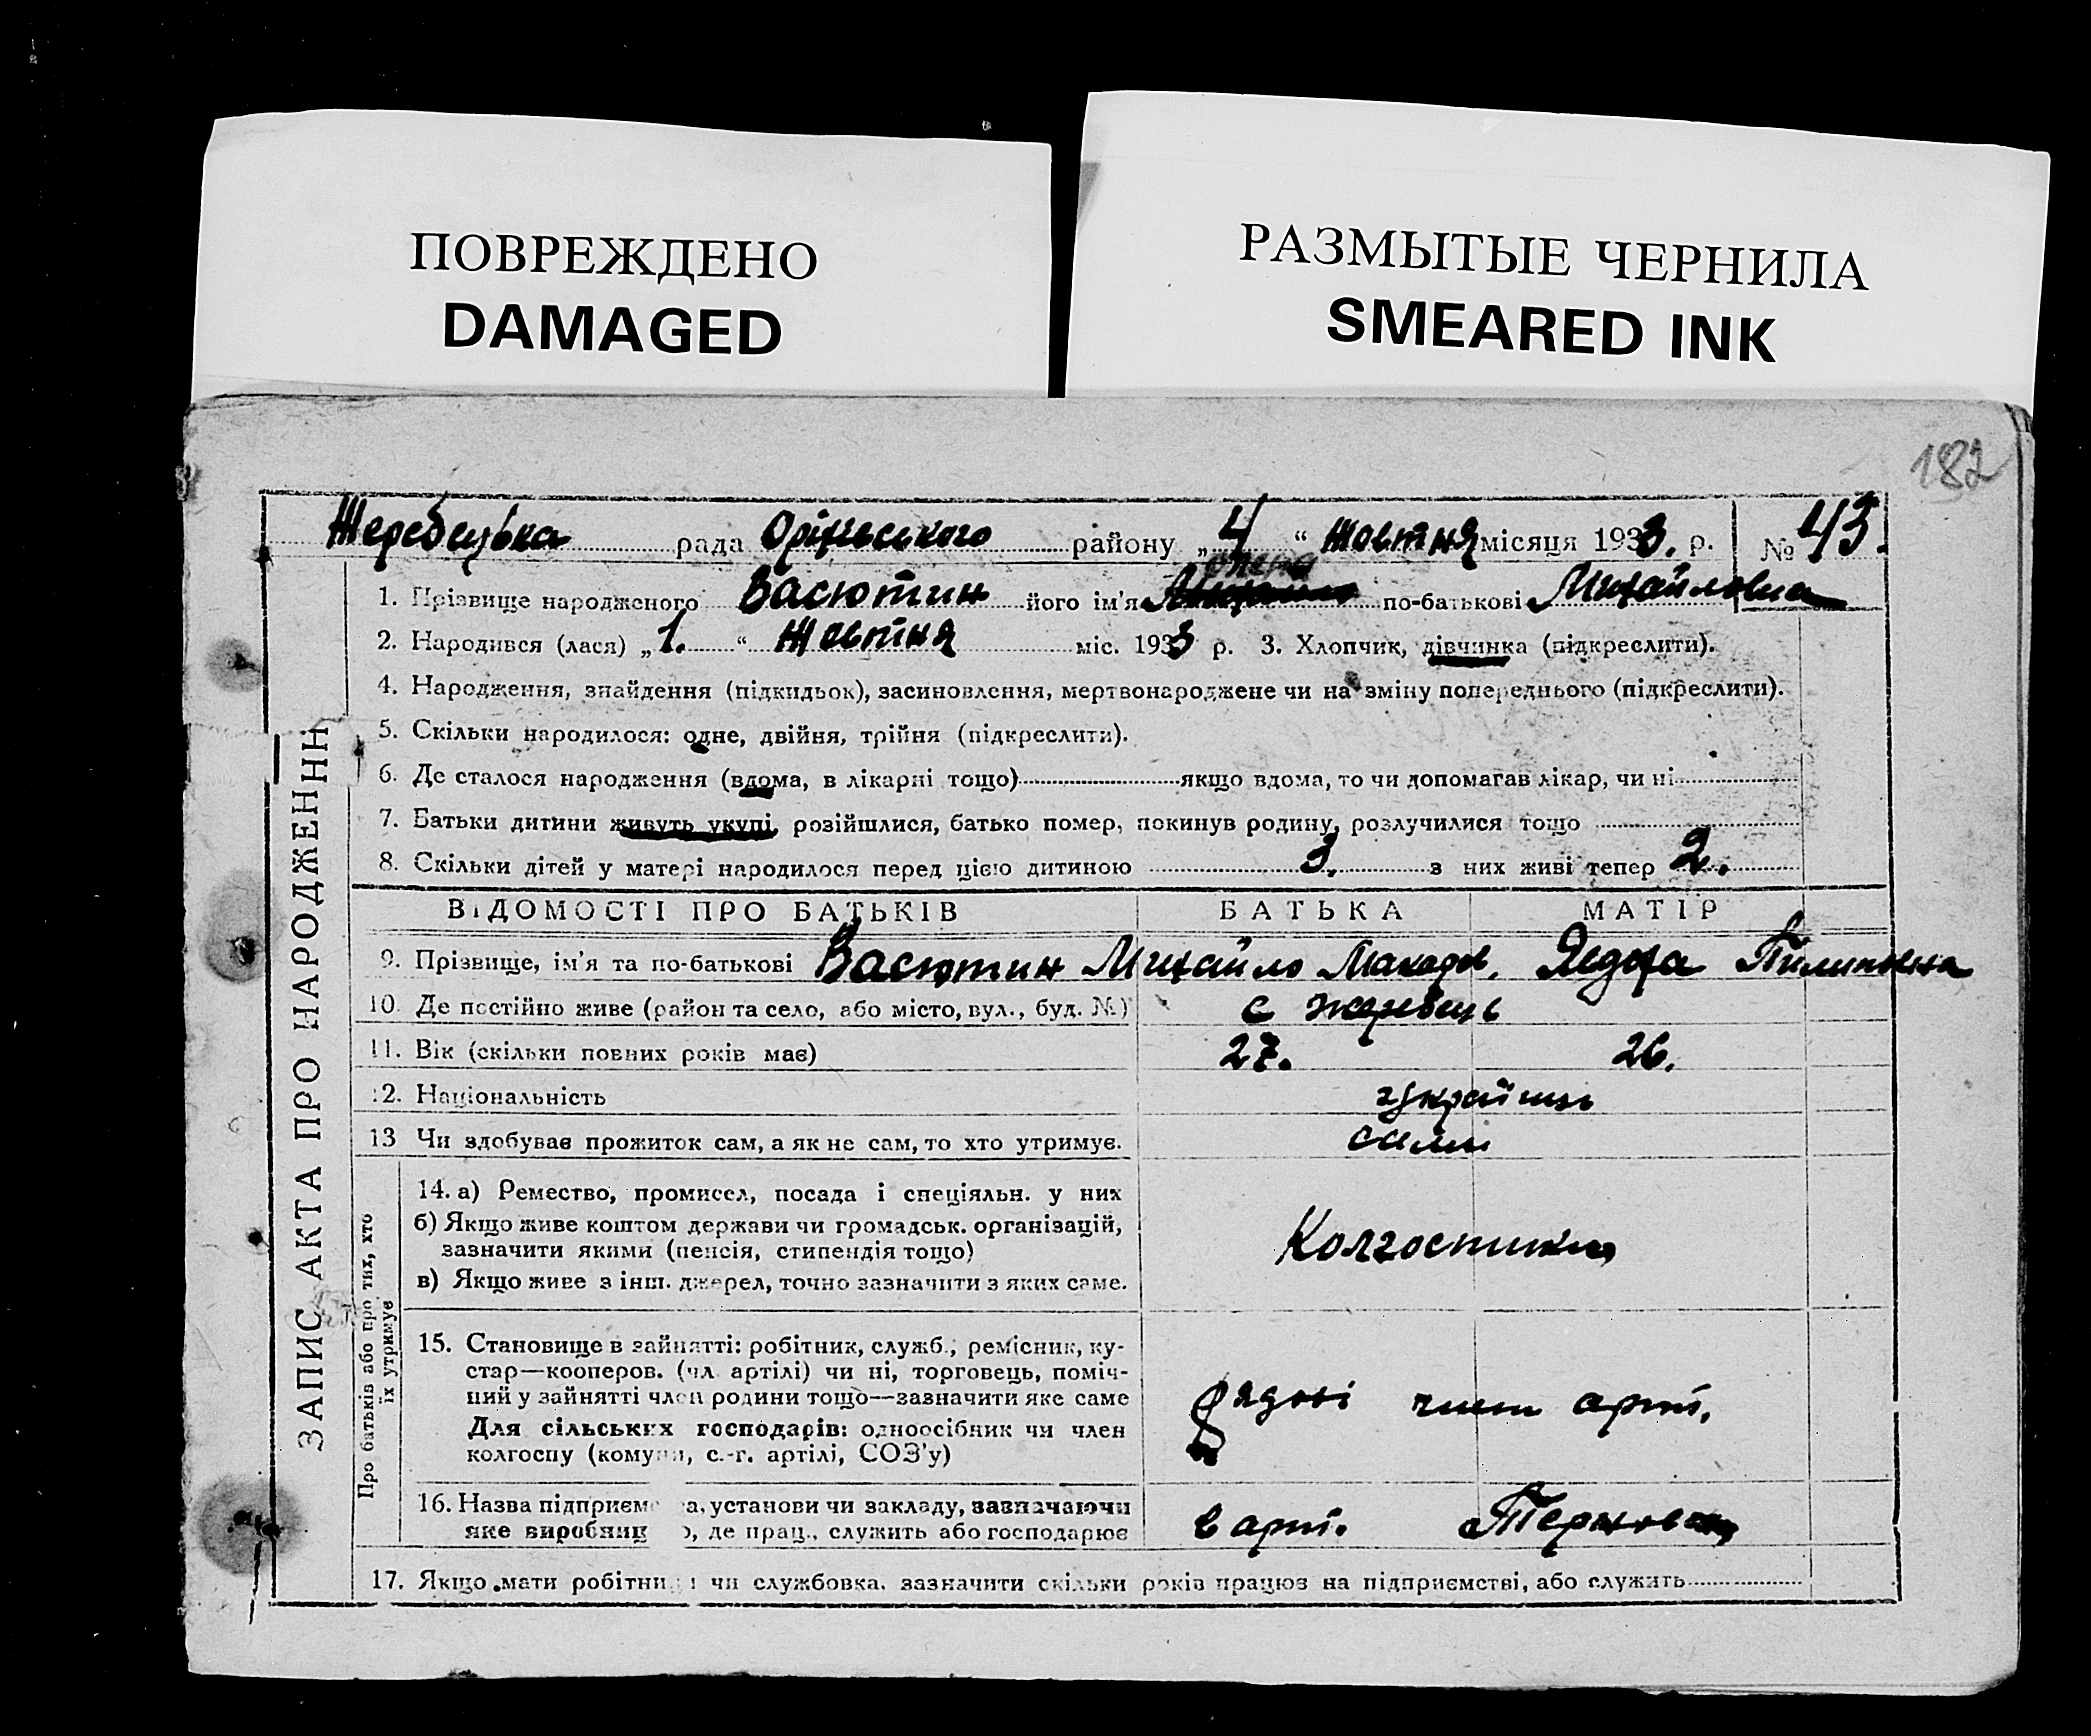 ПОВРЕЖДЕНО
DAMAGED
РАЗМЫТЫЕ ЧЕРНИЛА
SMEARED INK
182
Жеребецька рада Оріхівського району „ 4 “ Жовтня місяця 1933. р. № 43.
1. Прізвище народженого Васютин його ім'я по-батькові Михайловна
2. Народився (лася) „ 1. “ Жовтня міс. 1933 р. 3. Хлопчик, дівчинка (підкреслити).
4. Народження, знайдення (підкидьок), засиновлення, мертвонароджене чи на зміну попереднього (підкреслити).
5. Скільки народилося: одне, двійня, трійня (підкреслити).
6. Де сталося народження (вдома, в лікарні тощо) якщо вдома, то чи допомагав лікар, чи ні
7. Батьки дитини живуть укупі, розійшлися, батько помер, покинув родину, розлучилися тощо
8. Скільки дітей у матері народилося перед цією дитиною 3. з них живі тепер 2.
ВІДОМОСТІ ПРО БАТЬКІВ БАТЬКА МАТІР
9. Прізвище, ім'я та по-батькові Васютин Михайло Пилиповна
10. Де постійно живе (район та село, або місто, вул., буд. №) с Жеребець
11. Вік (скільки повних років має) 27. 26.
12. Національність українці
13 Чи здобуває прожиток сам, а як не сам, то хто утримує. сами
14. а) Ремество, промисел, посада і спеціяльн. у них
б) Якщо живе коштом держави чи громадськ. організацій,
зазначити якими (пенсія, стипендія тощо)
в) Якщо живе з інш. джерел, точно зазначити з яких саме.
Колгоспники
15. Становище в зайнятті: робітник, служб., ремісник, ку-
стар—кооперов. (чл. артілі) чи ні, торговець, поміч-
ний у зайнятті член родини тощо—зазначити яке саме
Для сільських господарів: одноосібник чи член
колгоспу (комуни, с.-г. артілі, СОЗ'у)
Рядові член арті.
16. Назва підприєм а, установи чи закладу, зазначаючи
яке виробниц о, де прац., служить або господарює
в арт.
17. Якщо мати робітниця чи службовка, зазначити скільки років працює на підприємстві, або служить
ЗАПИС АКТА ПРО НАРОДЖЕННЯ
Про батьків або про тих, хто
їх утримує